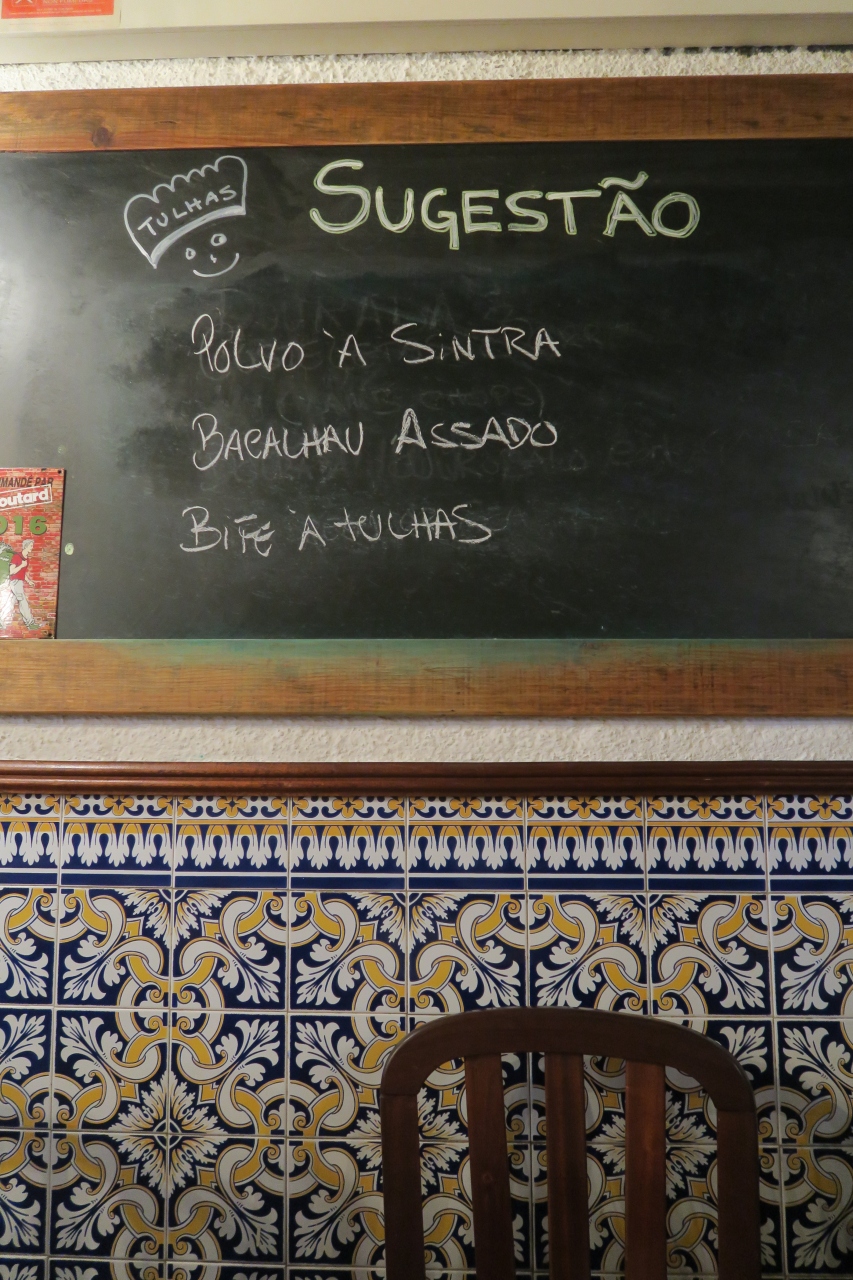 TULHAS
SUGESTÃO
POLVO À SINTRA
BACALHAU ASSADO
BIFE À TULHAS
MANDÉ PAR
outard
016